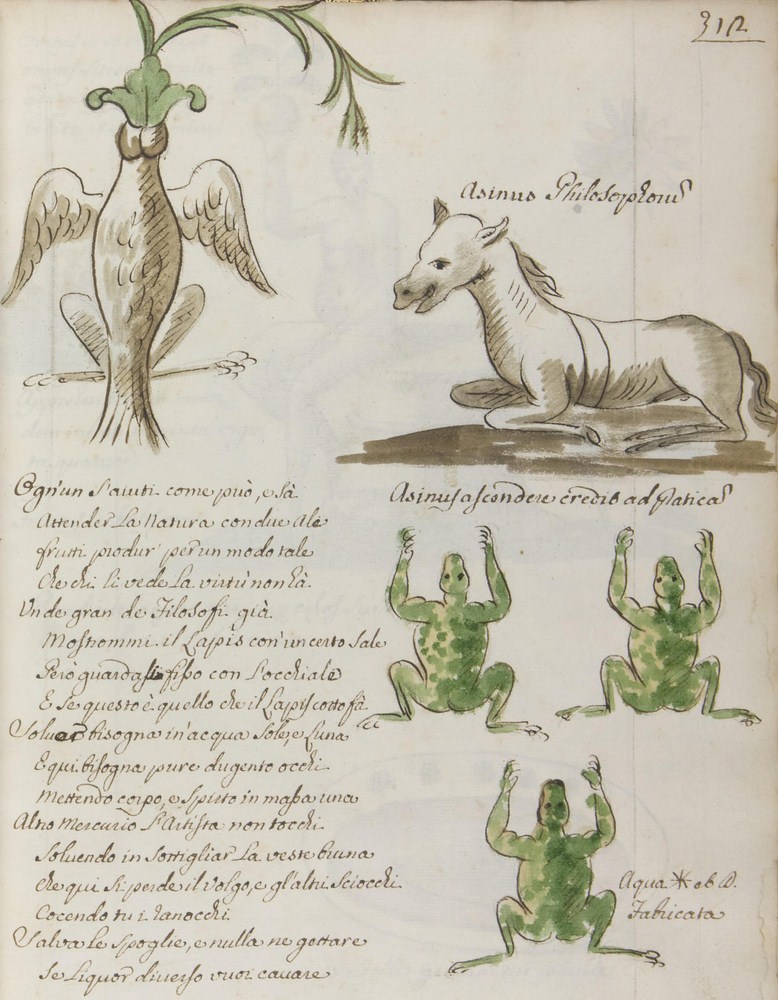 312
Asinus Philosophorũ
Ogn'un s'aiuti come può, e sà
Attender La Natura con due Ale
frutti produr' per un modo tale
Che chi li vede La virtù non hà.
Unde gran de Filosofi già
Mostrommi il Lapis con un certo Sale
Però guarda fisso con l'occhiale
E se questo è quello che il Lapis cotto fà
Solver bisogna in'acqua Sole, e Luna
E qui bisogna pure dugento occhi
Mettendo corpo, e spirto in massa una
Altro Mercurio L'Artista non tocchi
Solvendo in sottigliar La veste bruna
che qui si perde il volgo, e gl'altri Sciocchi
Cocendo tu i ranocchi
Salva le spoglie, e nulla ne gettare
Se Liquor diverso vuoi cavare
Asinus ascondere credis ad
Aqua
Fabricata